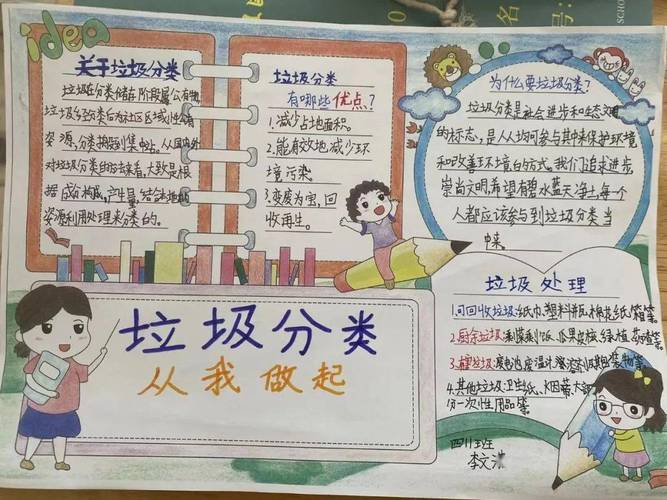 idea
关于垃圾分类
垃圾在分类储存阶段属公有物
垃圾经公众分类后为社区区域性公有
资源,分类搬到集中站,从国内外
对垃圾分类的方法来看,大致是根
据成分构成,产生量,结合本地垃圾
资源利用处理来分类的。
垃圾分类
有哪些优点?
1.减少占地面积。
2.能有效地减少环
境污染
3.变废为宝,回
收再生。
为什么要垃圾分类?
垃圾分类是社会进步和生态文明
的标志,是人均可参与其中来保护环境
和改善环境的方式。我们追求进步,
崇尚文明,希望有碧水蓝天净土,每个
人都应该参与到垃圾分类当
中来。
垃圾处理
1.可回收垃圾:纸巾、塑料 纸箱等。
2.厨余垃圾:剩菜剩饭、瓜果皮核、绿植、
3. 垃圾:废电池、废温计、
4.其他垃圾:卫生纸、
一次性用品等
垃圾分类
从我做起
四川班
李文
名
号:
SCHOO